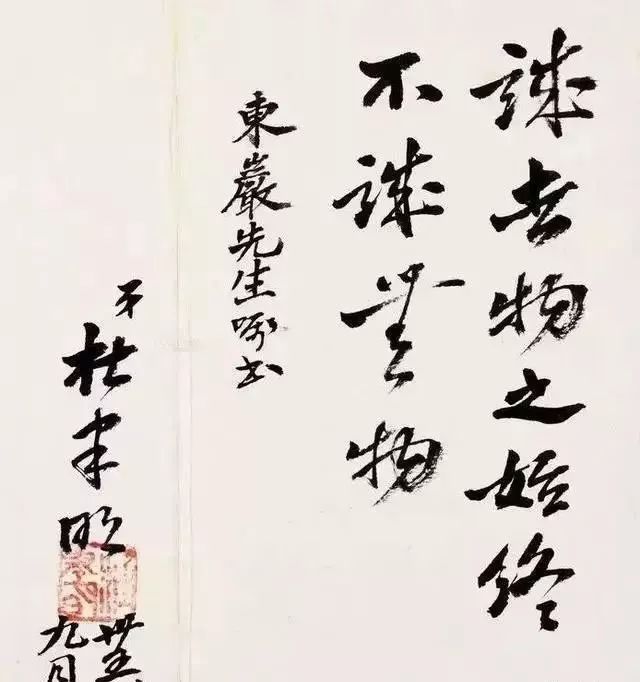 誠者物之始終
不誠無物
東巖先生囑書
弟
杜聿明
卅五
九月